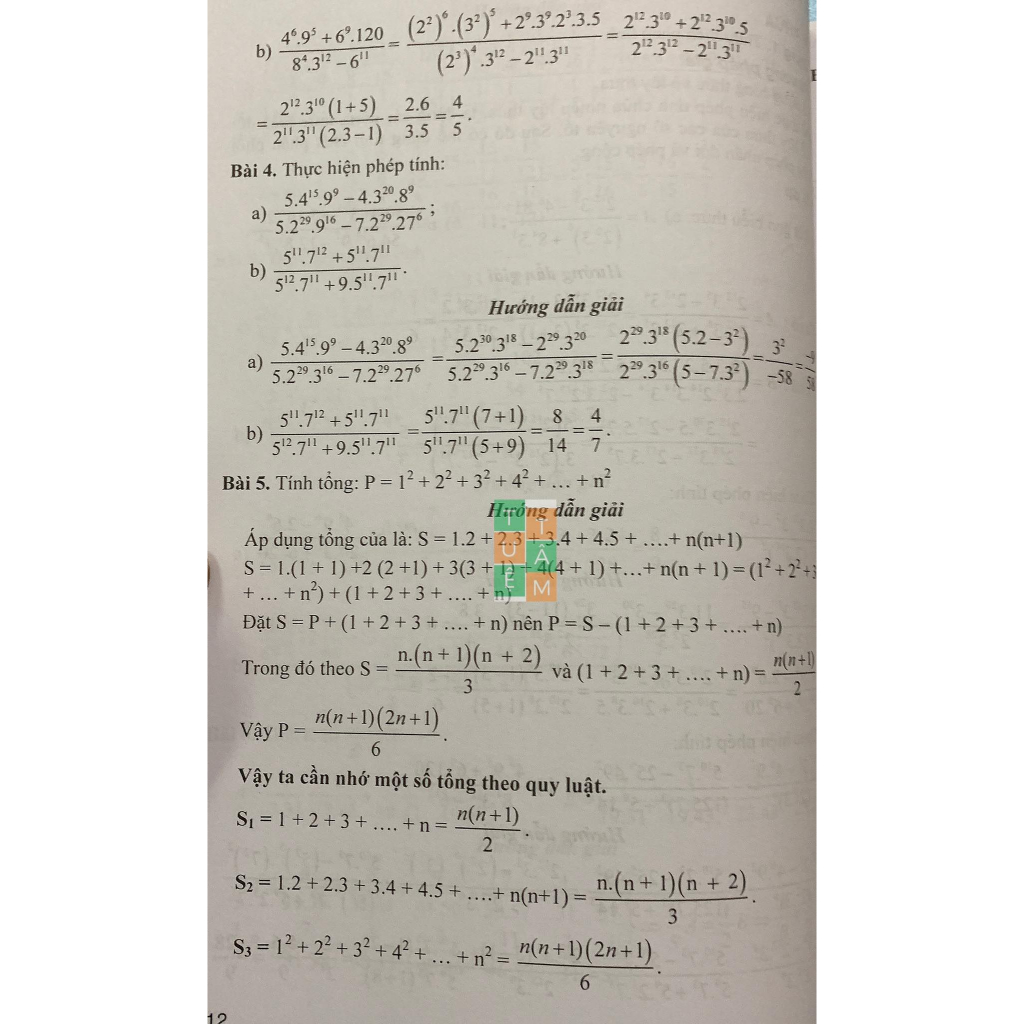 b) \frac{4^6.9^5 + 6^9.120}{8^4.3^{12} - 6^{11}} = \frac{(2^2)^6.(3^2)^5 + 2^9.3^9.2^3.3.5}{(2^3)^4.3^{12} - 2^{11}.3^{11}} = \frac{2^{12}.3^{10} + 2^{12}.3^{10}.5}{2^{12}.3^{12} - 2^{11}.3^{11}}
= \frac{2^{12}.3^{10}(1+5)}{2^{11}.3^{11}(2.3-1)} = \frac{2.6}{3.5} = \frac{4}{5}.
Bài 4. Thực hiện phép tính:
a) \frac{5.4^{15}.9^9 - 4.3^{20}.8^9}{5.2^{29}.9^{16} - 7.2^{29}.27^6};
b) \frac{5^{11}.7^{12} + 5^{11}.7^{11}}{5^{12}.7^{11} + 9.5^{11}.7^{11}}.
Hướng dẫn giải
a) \frac{5.4^{15}.9^9 - 4.3^{20}.8^9}{5.2^{29}.3^{16} - 7.2^{29}.27^6} = \frac{5.2^{30}.3^{18} - 2^{29}.3^{20}}{5.2^{29}.3^{16} - 7.2^{29}.3^{18}} = \frac{2^{29}.3^{18}(5.2 - 3^2)}{2^{29}.3^{16}(5 - 7.3^2)} = \frac{3^2}{-58} =
b) \frac{5^{11}.7^{12} + 5^{11}.7^{11}}{5^{12}.7^{11} + 9.5^{11}.7^{11}} = \frac{5^{11}.7^{11}(7+1)}{5^{11}.7^{11}(5+9)} = \frac{8}{14} = \frac{4}{7}.
Bài 5. Tính tổng: P = 1^2 + 2^2 + 3^2 + 4^2 + … + n^2
Hướng dẫn giải
Áp dụng tổng của là: S = 1.2 + 2.3 + 3.4 + 4.5 + ….+ n(n+1)
S = 1.(1 + 1) +2 (2 +1) + 3(3 + 1) + 4(4 + 1) +…+ n(n + 1) = (1^2 + 2^2 +3
+ … + n^2) + (1 + 2 + 3 + …. + n)
Đặt S = P + (1 + 2 + 3 + …. + n) nên P = S – (1 + 2 + 3 + …. + n)
Trong đó theo S = \frac{n.(n + 1)(n + 2)}{3} và (1 + 2 + 3 + …. + n) = \frac{n(n+1)}{2}
Vậy P = \frac{n(n+1)(2n+1)}{6}.
Vậy ta cần nhớ một số tổng theo quy luật.
S_1 = 1 + 2 + 3 + …. + n = \frac{n(n+1)}{2}.
S_2 = 1.2 + 2.3 + 3.4 + 4.5 + ….+ n(n+1) = \frac{n.(n + 1)(n + 2)}{3}.
S_3 = 1^2 + 2^2 + 3^2 + 4^2 + … + n^2 = \frac{n(n+1)(2n+1)}{6}.
12
TUỆ TÂM